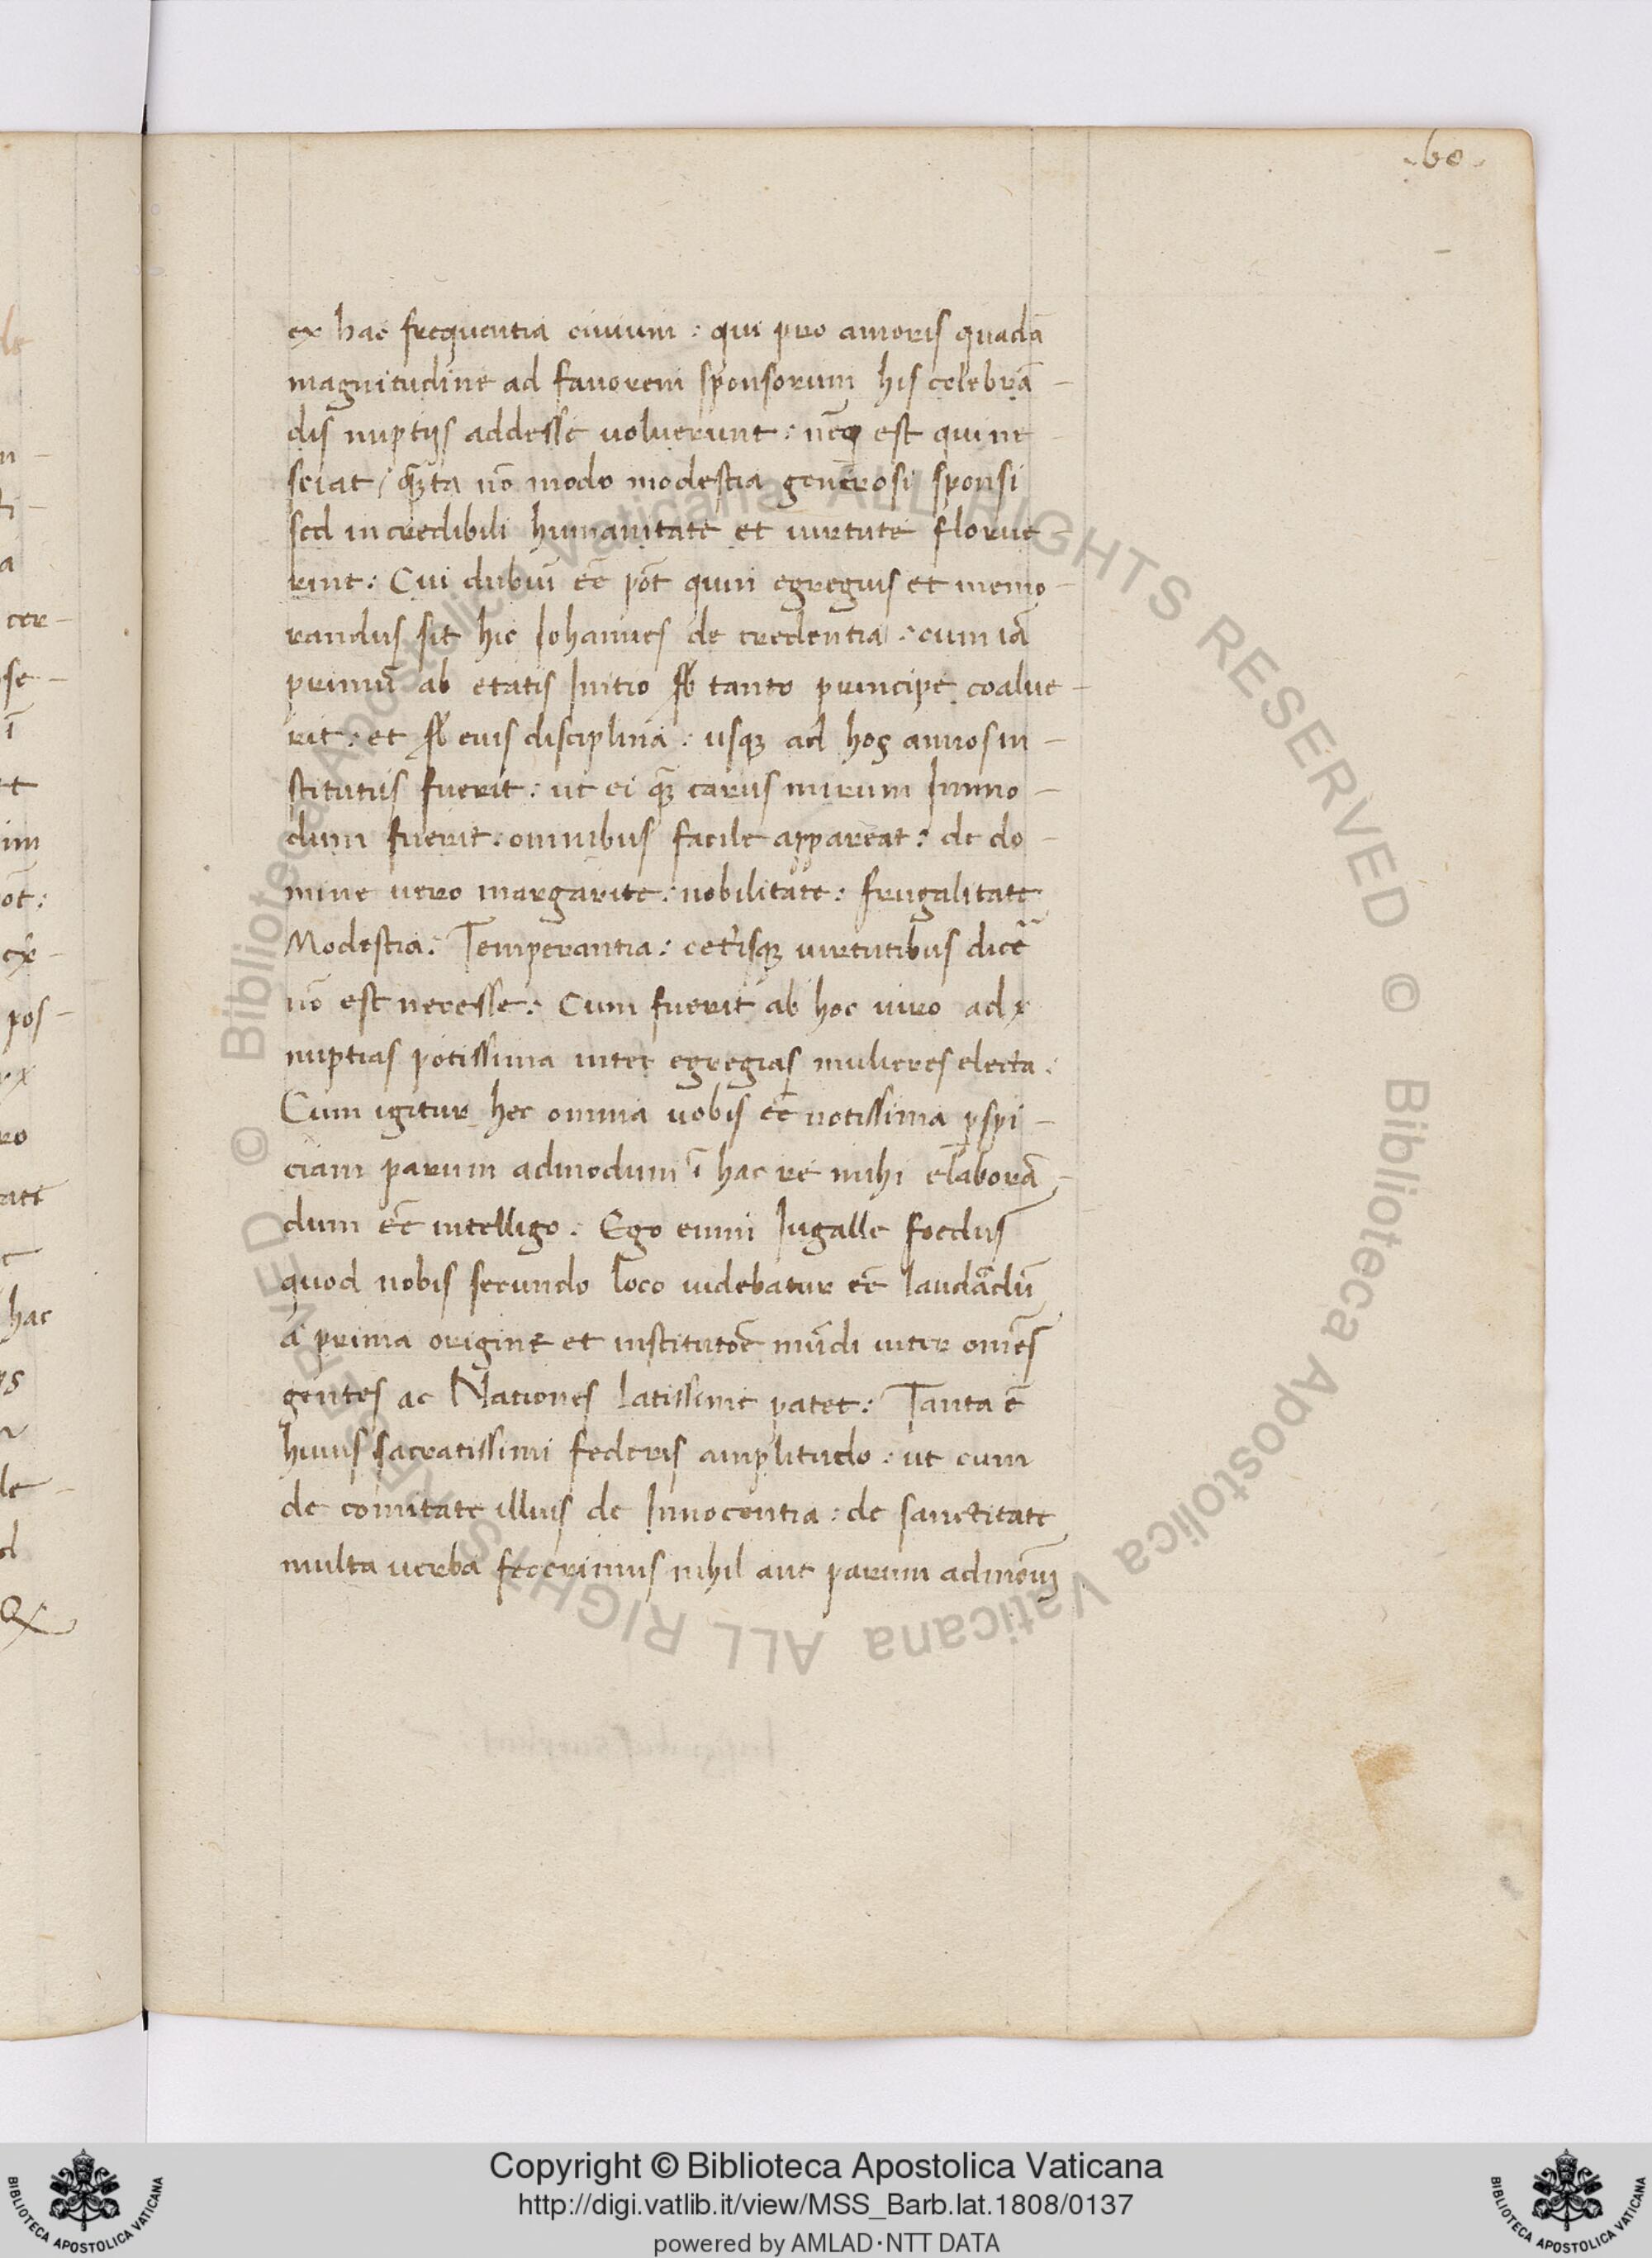 .60.
ex hac frequentia ciuium : qui pro amoris quadā
magnitudine ad fauorem sponsorum his celebrā-
dis nuptijs addesse uoluerunt : neq est qui ne
sciat / quāta nō modo modestia generosi sponsi
sed incredibili humanitate et uirtute florue
rint : Cui dubiū eē pōt quin egregius et memo-
randus sit hic Iohannes de credentia : cum iā
primū ab etatis Initio sb tanto principe coalue-
rit : et sb eius disciplina : usqz ad hos annos in-
stitutus fuerit : ut ei qz carus mirum Inmo-
dum fuerit : omnibus facile appareat : de do-
mine uero margarite : nobilitate : frugalitate
Modestia : Temperantia : ceterisqz uirtutibus dicē
nō est necesse : Cum fuerit ab hoc uiro ad
nuptias potissima inter egregias mulieres electa :
Cum igitur hec omnia uobis eē notissima pspi-
ciam parum admodum ī hac re mihi elaborā-
dum eē intelligo : Ego enim Iugalle foedus
quod nobis secundo loco uidebatur eē laudādū
a prima origine et institutōe mūdi inter omēs
gentes ac Nationes latissime patet : Tanta ē
huius sacratissimi federis amplitudo : ut cum
de comitate illius de Innocentia : de sanctitate
multa uerba fecerimus nihil aut parum admōuz
hac
pos-
cer-
© Biblioteca Apostolica Vaticana ALL RIGHTS RESERVED
© Biblioteca Apostolica Vaticana ALL RIGHTS RESERVED
BIBLIOTECA APOSTOLICA VATICANA
Copyright © Biblioteca Apostolica Vaticana
http://digi.vatlib.it/view/MSS_Barb.lat.1808/0137
powered by AMLAD·NTT DATA
BIBLIOTECA APOSTOLICA VATICANA